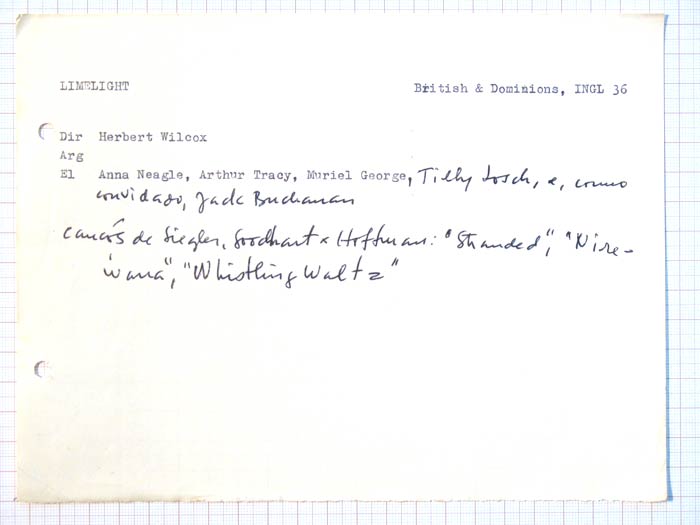 LIMELIGHT British & Dominions, INGL 36
Dir Herbert Wilcox
Arg
El Anna Neagle, Arthur Tracy, Muriel George, Tilly Losch, e, como
convidado, Jack Buchanan
Canções de Siegler, Goodhart & Hoffman: "Stranded", "Nire-
wana", "Whistling Waltz"